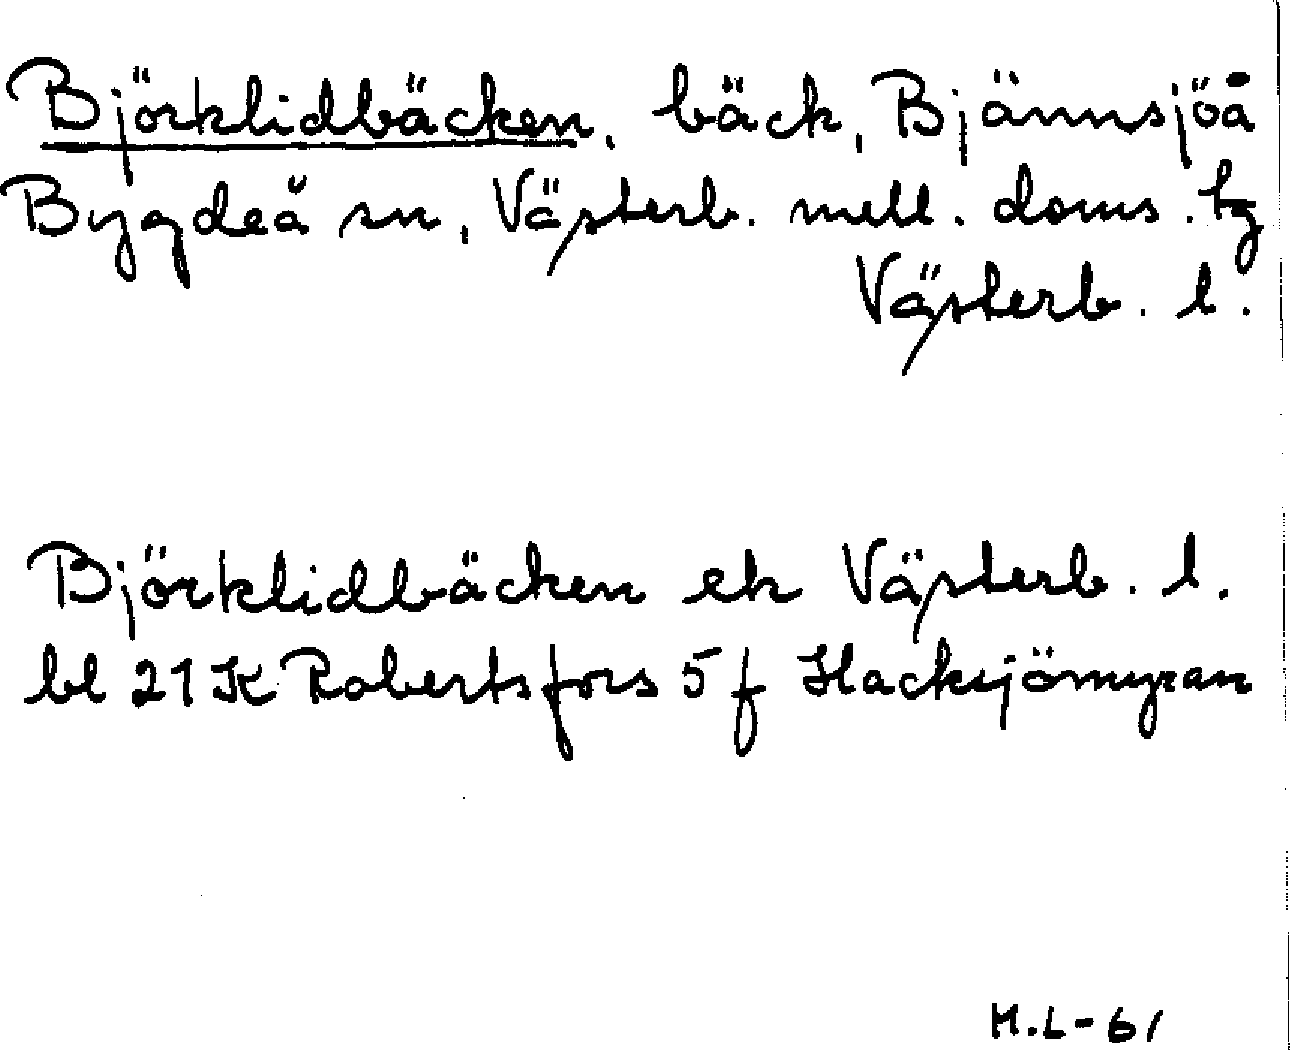 Björklidbäcken, bäck, Bjännsjöå
Bygdeå sn, Västerb. mell. doms. tg
Västerb. l.
Björklidbäcken ek Västerb. l.
bl 21K Robertsfors 5f Hacksjömyran
H.L-61